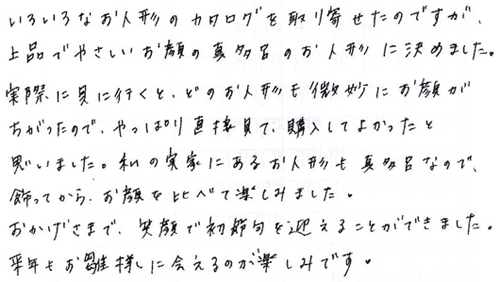 いろいろなお人形のカタログを取り寄せたのですが、
上品でやさしいお顔の真多呂のお人形に決めました。
実際に見に行くと、どのお人形も微妙にお顔が
ちがったので、やっぱり直接見て、購入してよかったと
思いました。私の実家にあるお人形も真多呂なので、
飾ってから、お顔を比べて楽しみました。
おかげさまで、笑顔で初節句を迎えることができました。
来年もお雛様に会えるのが楽しみです。